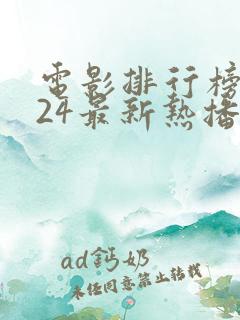 電影排行榜
24最新熱播
ad鈣奶
未經同意禁止轉載